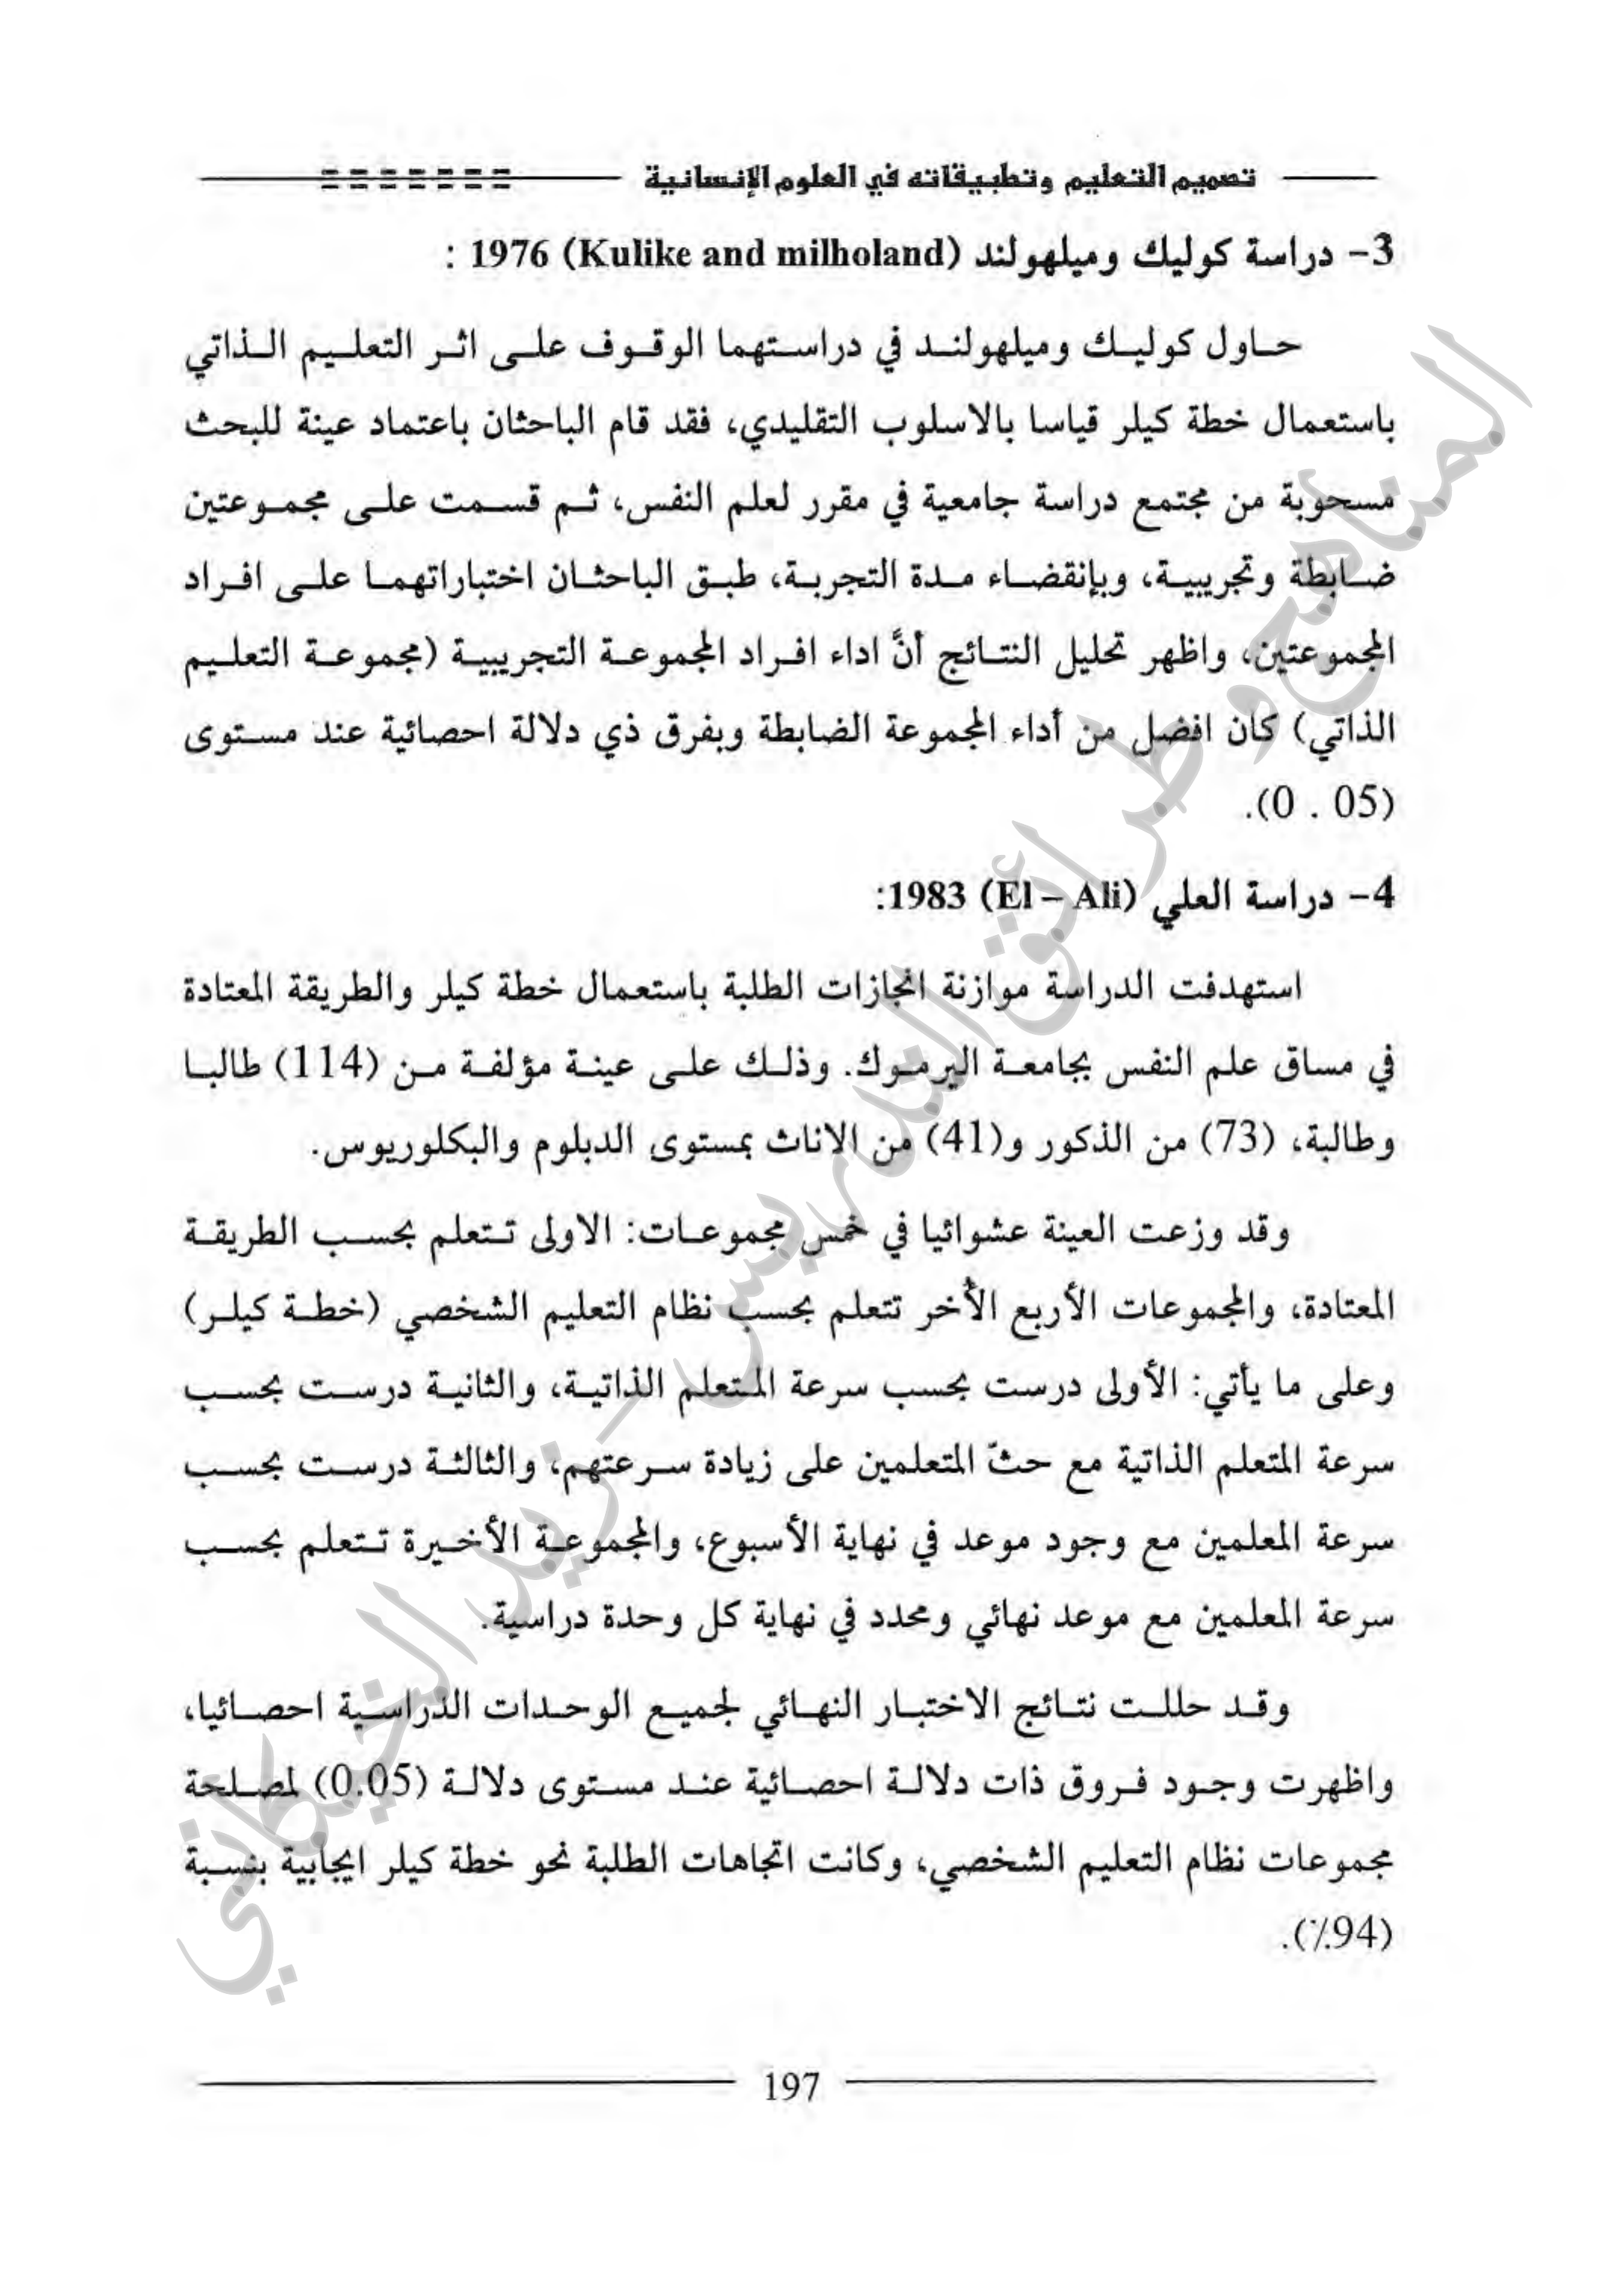 تصميم التعليم وتطبيقاته في العلوم الإنسانية
3- دراسة كوليك وميلهولند (Kulike and milholand) 1976 :
حاول كوليك وميلهولند في دراستهما الوقوف على اثر التعليم الذاتي
باستعمال خطة كيلر قياسا بالاسلوب التقليدي، فقد قام الباحثان باعتماد عينة للبحث
مسحوبة من مجتمع دراسة جامعية في مقرر لعلم النفس، ثم قسمت على مجموعتين
ضابطة وتجريبية، وبإنقضاء مدة التجربة، طبق الباحثان اختباراتهما على افراد
المجموعتين، واظهر تحليل النتائج أنَّ اداء افراد المجموعة التجريبية (مجموعة التعليم
الذاتي) كان افضل من أداء المجموعة الضابطة وبفرق ذي دلالة احصائية عند مستوى
(0 . 05).
4- دراسة العلي (El – Ali) 1983:
استهدفت الدراسة موازنة انجازات الطلبة باستعمال خطة كيلر والطريقة المعتادة
في مساق علم النفس بجامعة اليرموك. وذلك على عينة مؤلفة من (114) طالبا
وطالبة، (73) من الذكور و(41) من الاناث بمستوى الدبلوم والبكلوريوس.
وقد وزعت العينة عشوائيا في خمس مجموعات: الاولى تتعلم بحسب الطريقة
المعتادة، والمجموعات الأربع الأخر تتعلم بحسب نظام التعليم الشخصي (خطة كيلر)
وعلى ما يأتي: الأولى درست بحسب سرعة المتعلم الذاتية، والثانية درست بحسب
سرعة المتعلم الذاتية مع حثّ المتعلمين على زيادة سرعتهم، والثالثة درست بحسب
سرعة المعلمين مع وجود موعد في نهاية الأسبوع، والمجموعة الأخيرة تتعلم بحسب
سرعة المعلمين مع موعد نهائي ومحدد في نهاية كل وحدة دراسية.
وقد حللت نتائج الاختبار النهائي لجميع الوحدات الدراسية احصائيا،
واظهرت وجود فروق ذات دلالة احصائية عند مستوى دلالة (0.05) لمصلحة
مجموعات نظام التعليم الشخصي، وكانت اتجاهات الطلبة نحو خطة كيلر ايجابية بنسبة
(94٪).
197
المناهج وطرائق التدريس - زيد الخيكاني